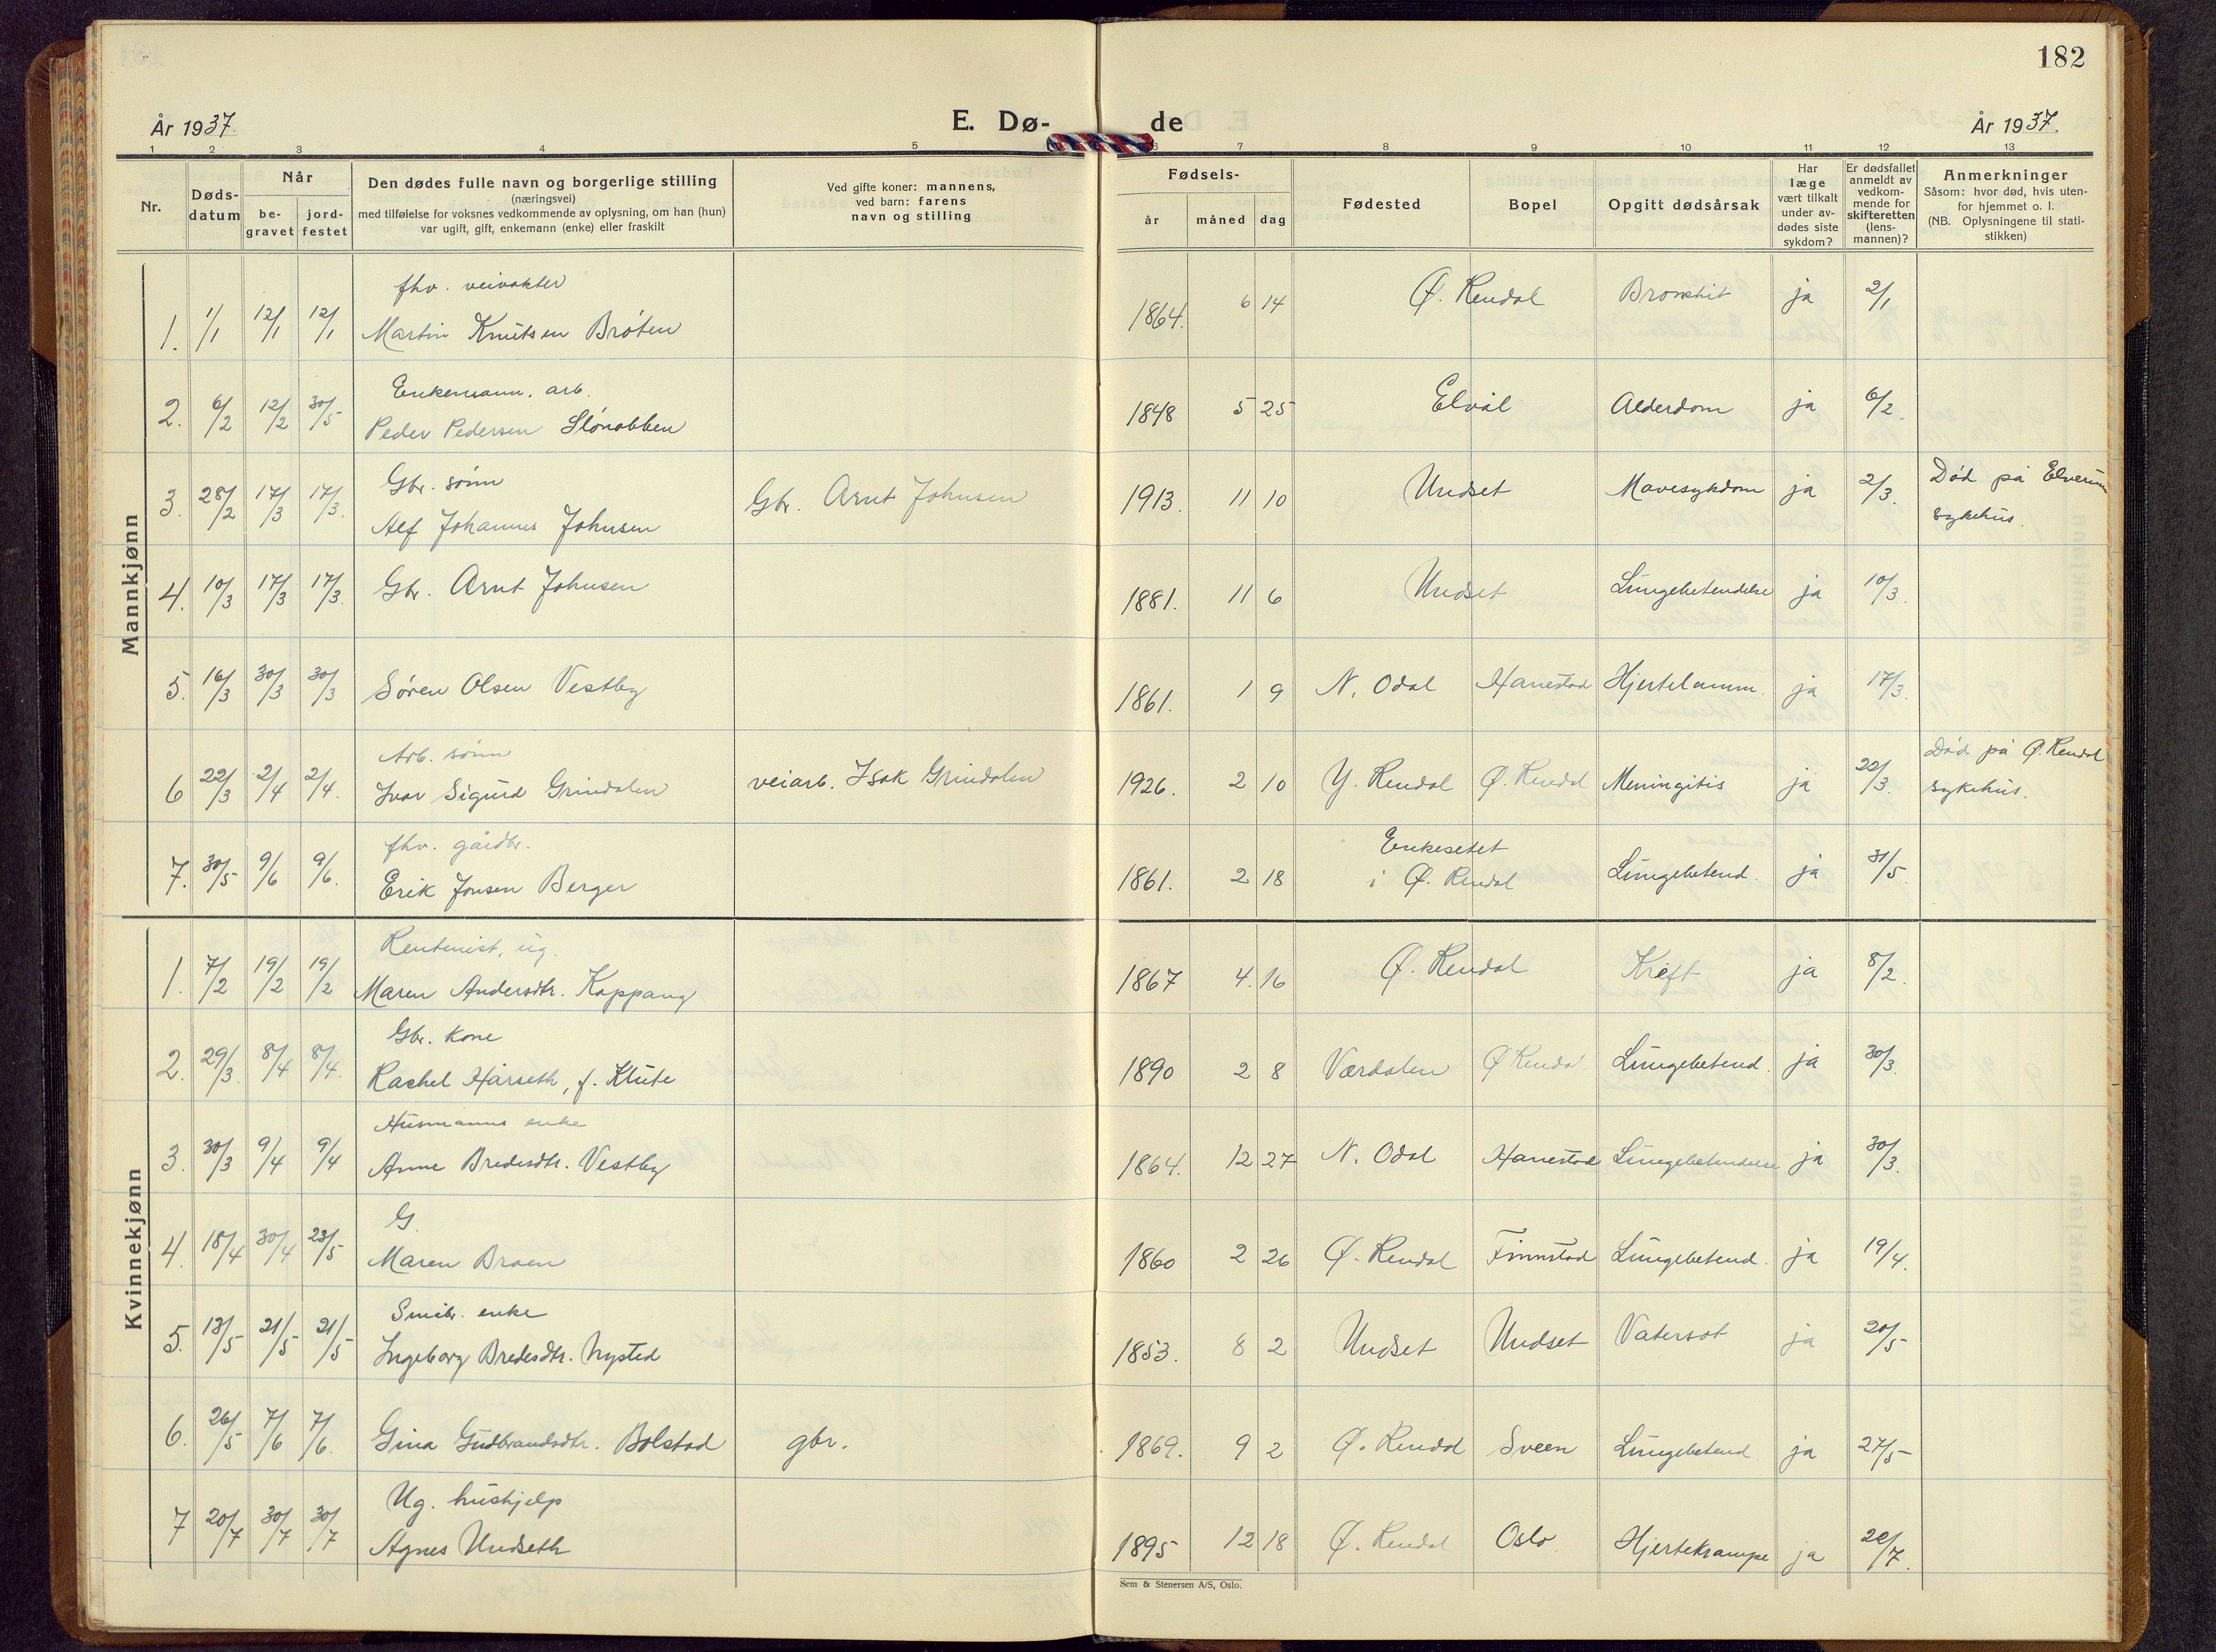 182
År 1937.
E. Dø-
de
År 1937.
1 2 3 4 5 6 7 8 9 10 11 12 13
Nr.
Døds-
datum
Når
be-
gravet
jord-
festet
Den dødes fulle navn og borgerlige stilling
(næringsvei)
med tilføielse for voksnes vedkommende av oplysning, om han (hun)
var ugift, gift, enkemann (enke) eller fraskilt
Ved gifte koner: mannens,
ved barn: farens
navn og stilling
Fødsels-
år måned dag
Fødested
Bopel
Opgitt dødsårsak
Har
læge
vært tilkalt
under av-
dødes siste
sykdom?
Er dødsfallet
anmeldt av
vedkom-
mende for
skifteretten
(lens-
mannen)?
Anmerkninger
Såsom: hvor død, hvis uten-
for hjemmet o. l.
(NB. Oplysningene til stati-
stikken)
Mannkjønn
fhv. veivokter
1. 1/1 12/1 12/1 Martin Knutsen Bröten 1864. 6 14 Ø. Rendal Bronkit ja 2/1
Enkemann. arb.
2. 6/2 12/2 30/5 Peder Pedersen Slónabben 1848 5 25 Elvål Alderdom ja 6/2.
Gbr. sönn
3. 28/2 17/3 17/3. Alf Johannes Johnsen Gbr. Arnt Johnsen 1913. 11 10 Undset Mavesykdom ja 2/3. Död på Elverum
sykehus.
4. 10/3 17/3 17/3. Gbr. Arnt Johnsen 1881. 11 6 Undset Lungebetendelse ja 10/3.
5. 16/3 30/3 30/3 Søren Olsen Vestby 1861. 1 9 N. Odal Hanestad Hjertelamm. ja 17/3.
Arb. sönn
6 22/3 2/4 2/4. Ivar Sigurd Grindalen veiarb. Isak Grindalen 1926. 2 10 Y. Rendal Ø. Rendal Meningitis ja 22/3. Död på Ø. Rendal
sykehus.
fhv. gårdbr.
7. 30/5 9/6 9/6. Erik Jonsen Berger 1861. 2 18 Enkesetet
i Ø. Rendal Lungebetend. ja 31/5.
Kvinnekjønn
Rentenist, ug.
1. 7/2 19/2 19/2 Maren Andersdtr. Koppang 1867 4. 16 Ø. Rendal Kreft ja 8/2.
Gbr. kone
2. 29/3 8/4 8/4. Rachel Hårseth, f. Klute 1890 2 8 Værdalen Ø Rendal Lungebetend. ja 30/3.
Husmanns enke
3. 30/3 9/4 9/4 Anne Bredesdtr. Vestby 1864. 12 27 N. Odal Hanestad Lungebetendelse ja 30/3.
G.
4. 18/4 30/4 23/5 Maren Broen 1860 2 26 Ø. Rendal Finnstad Lungebetend. ja 19/4.
Småbr. enke
5. 13/5 21/5 21/5 Ingeborg Bredesdtr. Nysted 1853. 8 2 Undset Undset Vatersot ja 20/5
6. 26/5 7/6 7/6. Gina Gudbrandsdtr. Bolstad gbr. 1869. 9 2 Ø. Rendal Sveen Lungebetend ja 27/5
Ug. hushjelp
7 20/7 30/7 30/7 Agnes Undseth 1895 12 18 Ø. Rendal Oslo Hjertekrampe ja 20/7.
Sem & Stenersen A/S, Oslo.